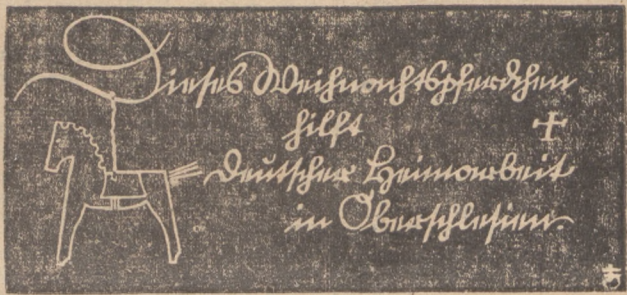 Dieses Weihnachtspferdchen
hilft
Deutscher Heimarbeit
in Oberschlesien.